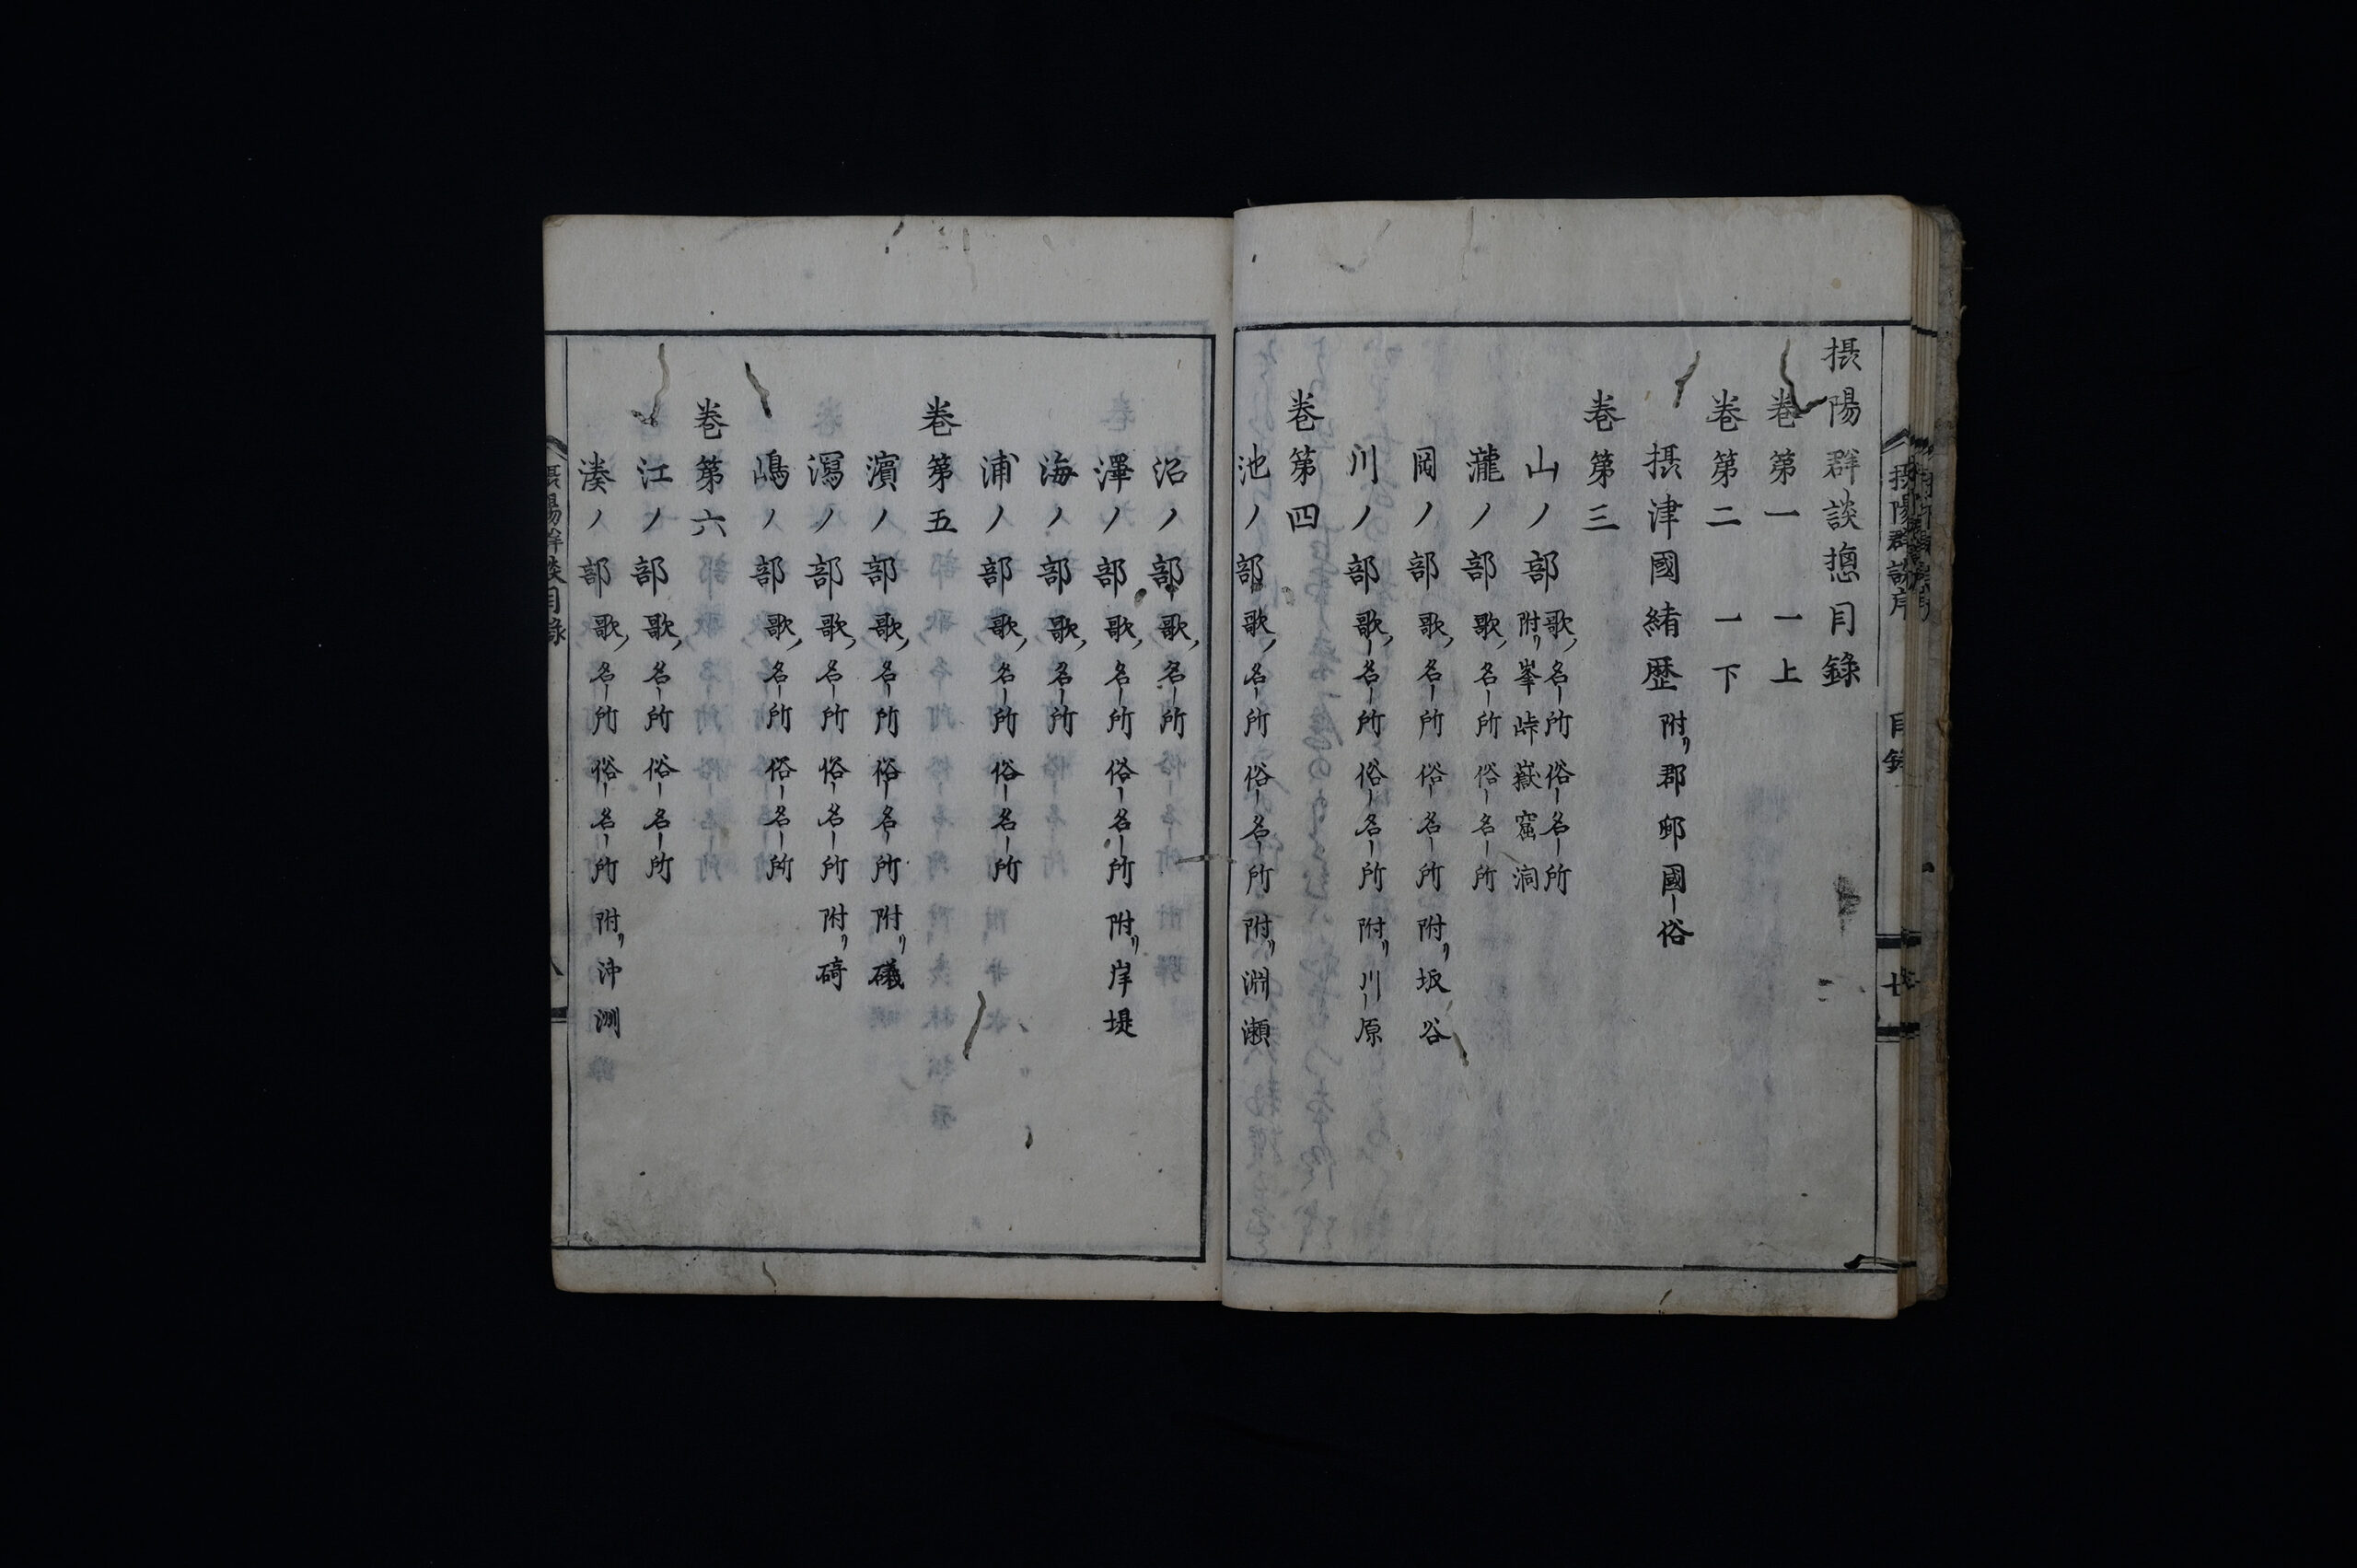 摂陽群談揔目録
巻第一　一上
巻第二　一下
摂津國緒歴附リ郡邨國俗
巻第三
山ノ部歌ノ名所俗名所
附リ峯峠嶽窟洞
瀧ノ部歌ノ名所俗名所
岡ノ部歌ノ名所俗名所附リ坂谷
川ノ部歌ノ名所俗名所附リ川原
巻第四
池ノ部歌ノ名所俗名所附リ淵瀬
沼ノ部歌ノ名所
澤ノ部歌ノ名所俗名所附リ岸堤
海ノ部歌ノ名所
浦ノ部歌ノ名所俗名所
巻第五
濱ノ部歌ノ名所俗名所附リ礒
潟ノ部歌ノ名所俗名所附リ碕
嶋ノ部歌ノ名所俗名所
巻第六
江ノ部歌ノ名所俗名所
湊ノ部歌ノ名所俗名所附リ沖渕
摂陽群談目録